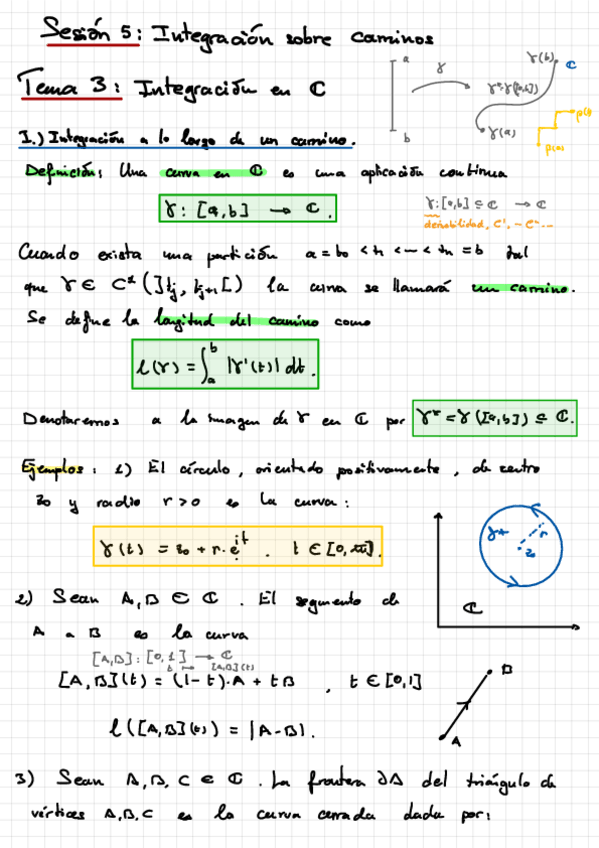 Sesión 5: Integración sobre caminos
Tema 3: Integración en ℂ
a
γ
γ(b)
ℂ
γ*=γ([a,b])
b
γ(a)
p(b)
p(a)
I.) Integración a lo largo de un camino.
Definición: Una curva en ℂ es una aplicación continua
γ: [a,b] → ℂ.
γ: [a,b] ⊆ ℂ → ℂ
derivabilidad, C¹, ...
Cuando exista una partición a = t₀ < t₁ < ... < tₙ = b tal
que γ ∈ C¹(]tⱼ, tⱼ₊₁[) la curva se llamará un camino.
Se define la longitud del camino como
l(γ) = ∫ₐᵇ |γ'(t)| dt.
Denotaremos a la imagen de γ en ℂ por γ* = γ([a,b]) ⊆ ℂ.
Ejemplos: 1) El círculo, orientado positivamente, de centro
z₀ y radio r>0 es la curva:
γ(t) = z₀ + r·e^{it}. t ∈ [0, 2π].
γ*
r
z₀
ℂ
2) Sean A, B ∈ ℂ. El segmento de
A a B es la curva
[A,B]: [0,1] → ℂ
t ↦ [A,B](t)
[A,B](t) = (1-t)·A + tB, t ∈ [0,1]
l([A,B](t)) = |A-B|.
B
A
3) Sean A, B, C ∈ ℂ. La frontera ∂Δ del triángulo de
vértices A, B, C es la curva cerrada dada por: